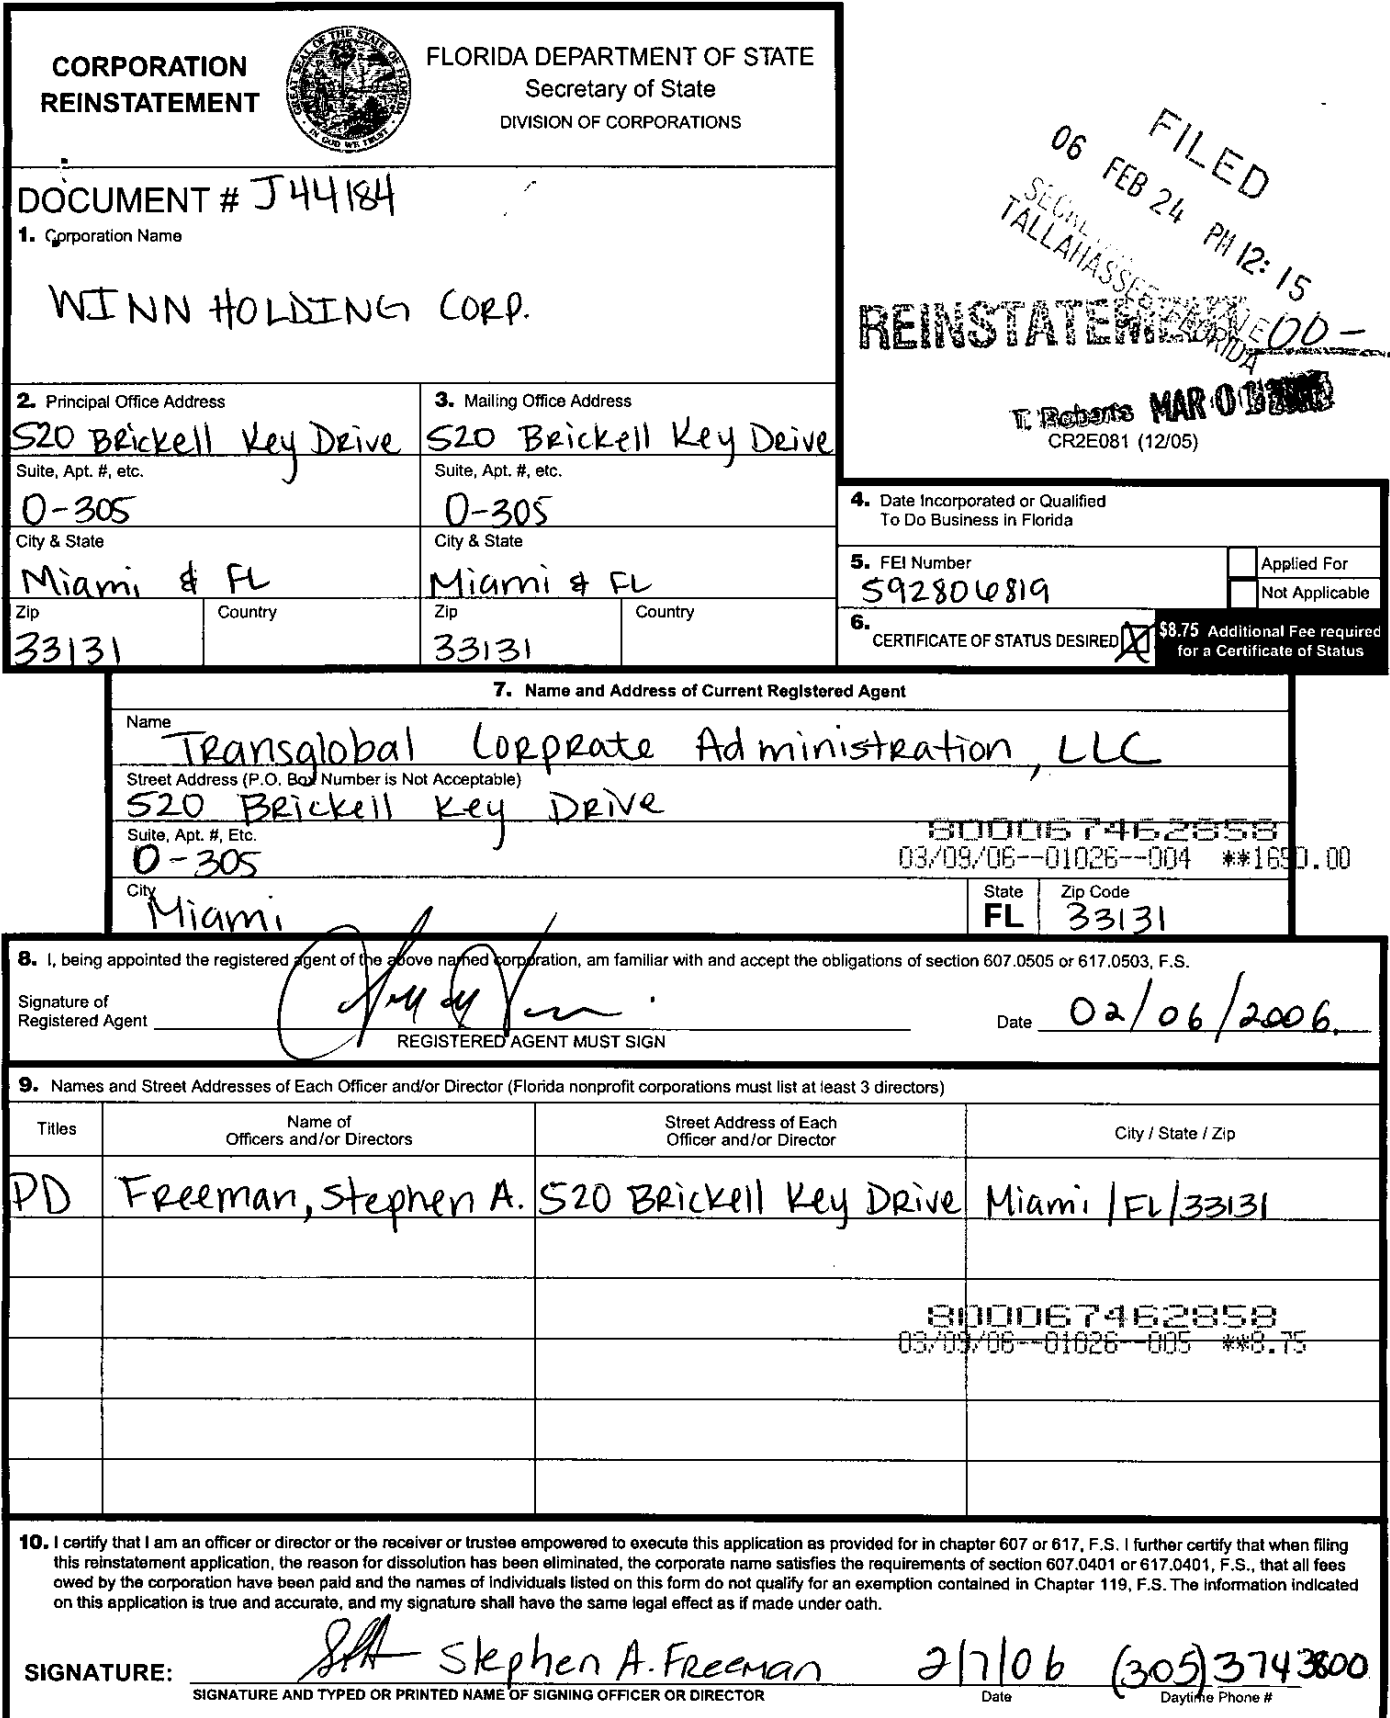 CORPORATION
REINSTATEMENT
GREAT SEAL OF THE STATE OF FLORIDA
IN GOD WE TRUST
FLORIDA DEPARTMENT OF STATE
Secretary of State
DIVISION OF CORPORATIONS
FILED
06 FEB 24 PM 12:15
TALLAHASSEE FLORIDA
REINSTATEMENT 00-
T. Roberts MAR 0
CR2E081 (12/05)
DOCUMENT # J44184
1. Corporation Name
WINN HOLDING CORP.
2. Principal Office Address
520 Brickell Key Drive
Suite, Apt. #, etc.
O-305
City & State
Miami & FL
Zip Country
33131
3. Mailing Office Address
520 Brickell Key Drive
Suite, Apt. #, etc.
O-305
City & State
Miami & FL
Zip Country
33131
4. Date Incorporated or Qualified
To Do Business in Florida
5. FEI Number
592806819
Applied For
Not Applicable
6. CERTIFICATE OF STATUS DESIRED X
$8.75 Additional Fee required
for a Certificate of Status
7. Name and Address of Current Registered Agent
Name
Transglobal Corprate Administration, LLC
Street Address (P.O. Box Number is Not Acceptable)
520 Brickell Key Drive
Suite, Apt. #, Etc.
O-305
800067462858
03/09/06--01026--004 **1650.00
City State Zip Code
Miami FL 33131
8. I, being appointed the registered agent of the above named corporation, am familiar with and accept the obligations of section 607.0505 or 617.0503, F.S.
Signature of
Registered Agent
REGISTERED AGENT MUST SIGN
Date 02/06/2006.
9. Names and Street Addresses of Each Officer and/or Director (Florida nonprofit corporations must list at least 3 directors)
Titles
Name of
Officers and/or Directors
Street Address of Each
Officer and/or Director
City / State / Zip
PD Freeman, Stephen A. 520 Brickell Key Drive Miami/FL/33131
800067462858
03/09/06--01026--005 **8.75
10. I certify that I am an officer or director or the receiver or trustee empowered to execute this application as provided for in chapter 607 or 617, F.S. I further certify that when filing
this reinstatement application, the reason for dissolution has been eliminated, the corporate name satisfies the requirements of section 607.0401 or 617.0401, F.S., that all fees
owed by the corporation have been paid and the names of individuals listed on this form do not qualify for an exemption contained in Chapter 119, F.S. The information indicated
on this application is true and accurate, and my signature shall have the same legal effect as if made under oath.
SIGNATURE: Stephen A. Freeman 2/7/06 (305)3743800
SIGNATURE AND TYPED OR PRINTED NAME OF SIGNING OFFICER OR DIRECTOR Date Daytime Phone #